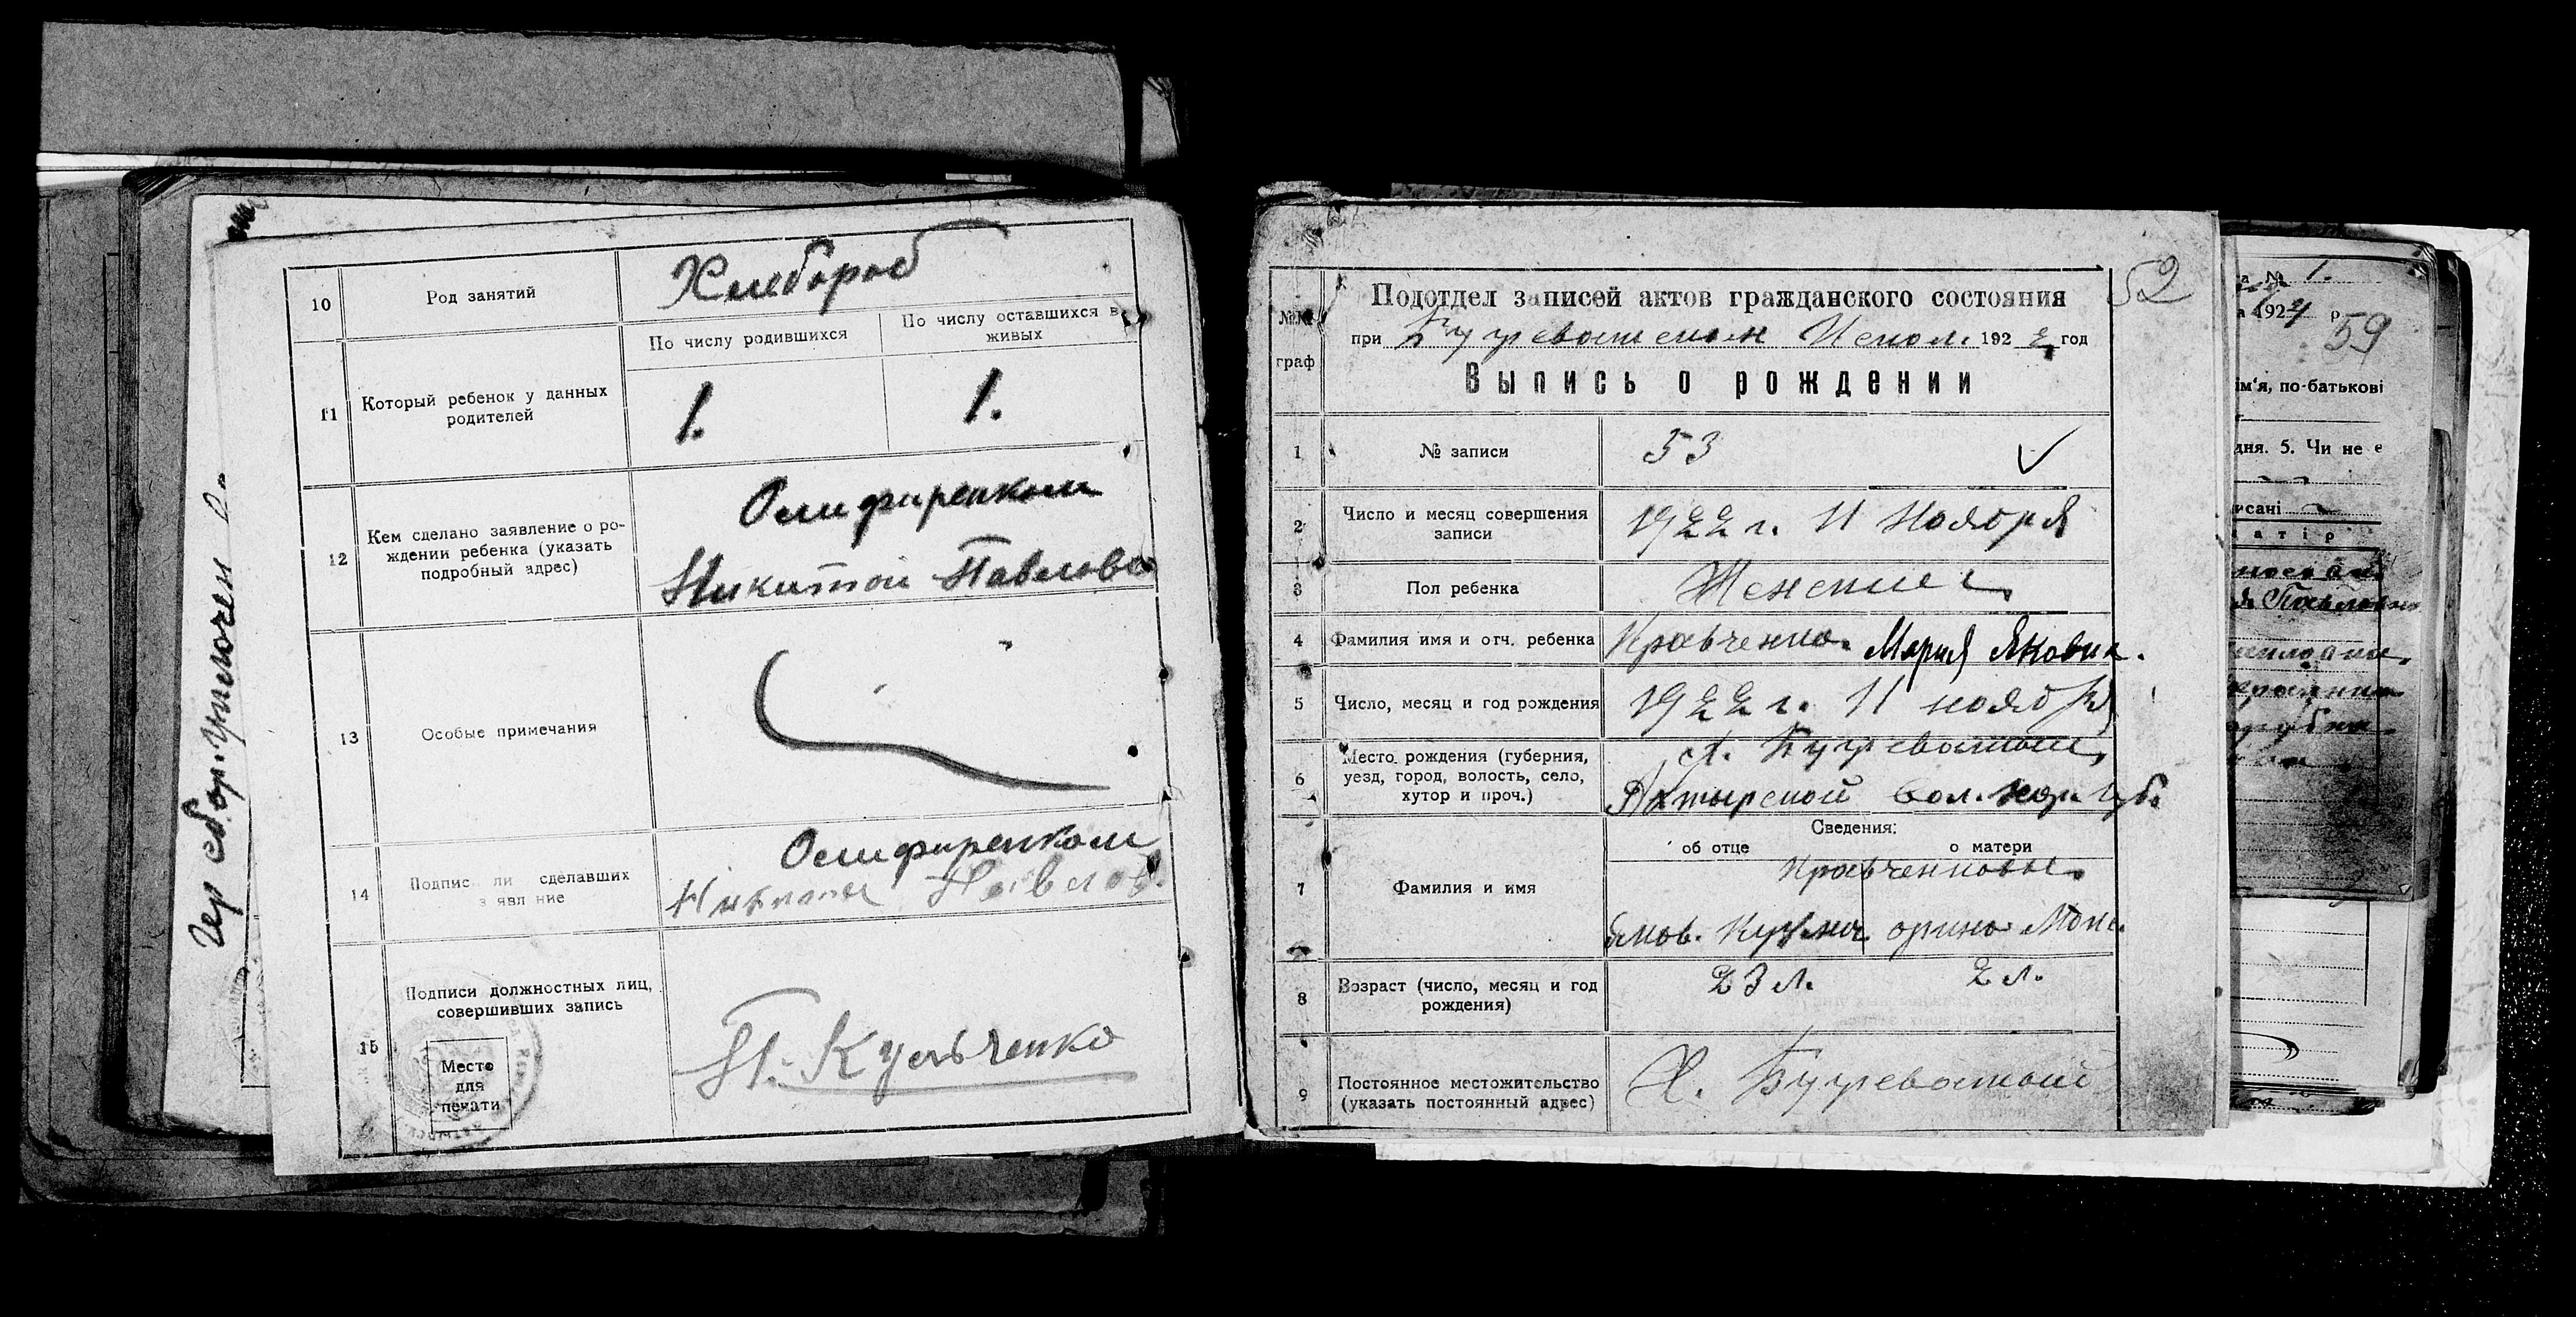 10
Род занятий
Хлебороб
11
Который ребенок у данных
родителей
По числу родившихся
По числу оставшихся в
живых
1.
1.
12
Кем сделано заявление о ро-
ждении ребенка (указать
подробный адрес)
Олифиренком
Никитой Павлово
13
Особые примечания
14
Подпис ли сделавших
з явл ние
Олифиренком
Никита Павлов.
15
Подписи должностных лиц,
совершивших запись
Место
для
печати
П. Кульченко
52
№№
граф
Подотдел записей актов гражданского состояния
при Бугреватском Испол. 1922 год
Выпись о рождении
1
№ записи
53
2
Число и месяц совершения
записи
1922 г. 11 Ноября
3
Пол ребенка
Женский
4
Фамилия имя и отч. ребенка
Кравченко. Мария Яковна.
5
Число, месяц и год рождения
1922 г. 11 ноября
6
Место рождения (губерния,
уезд, город, волость, село,
хутор и проч.)
х. Бугреватый
Ахтырской вол. Хар. Губ.
7
Фамилия и имя
Сведения:
об отце
о матери
Кравченковы.
Яков. Кузмич
8
Возраст (число, месяц и год
рождения)
23 л.
2 л.
9
Постоянное местожительство
(указать постоянный адрес)
Х. Бугреватый
№ 1.
1924 р
59
ім'я, по-батькові
дня. 5. Чи не е
исані
атір